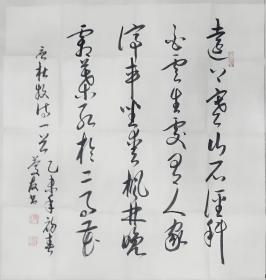 远上寒山石径斜
白云生处有人家
停车坐爱枫林晚
霜叶红于二月花
唐杜牧诗一首
乙未年初春